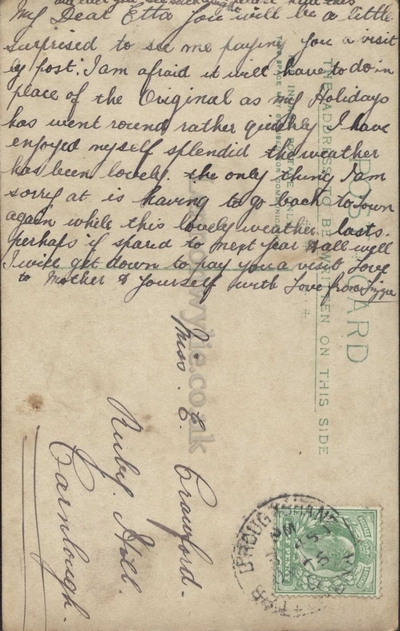 My Dear Etta You will be a little
surprised to see me paying you a visit
by post. I am afraid it will have to do in
place of the Original as my Holidays
has went round rather quickly I have
enjoyed myself splendid the weather
has been lovely. the only thing I am
sorry at is having to go back to town
again while this lovely weather lasts.
perhaps if spared to next year & all well
I will get down to pay you a visit Love
to Mother & Yourself with Love from
Miss. E. Crawford.
Ruby Hill.
Carnlough.
POST CARD
THE ADDRESS TO BE WRITTEN ON THIS SIDE